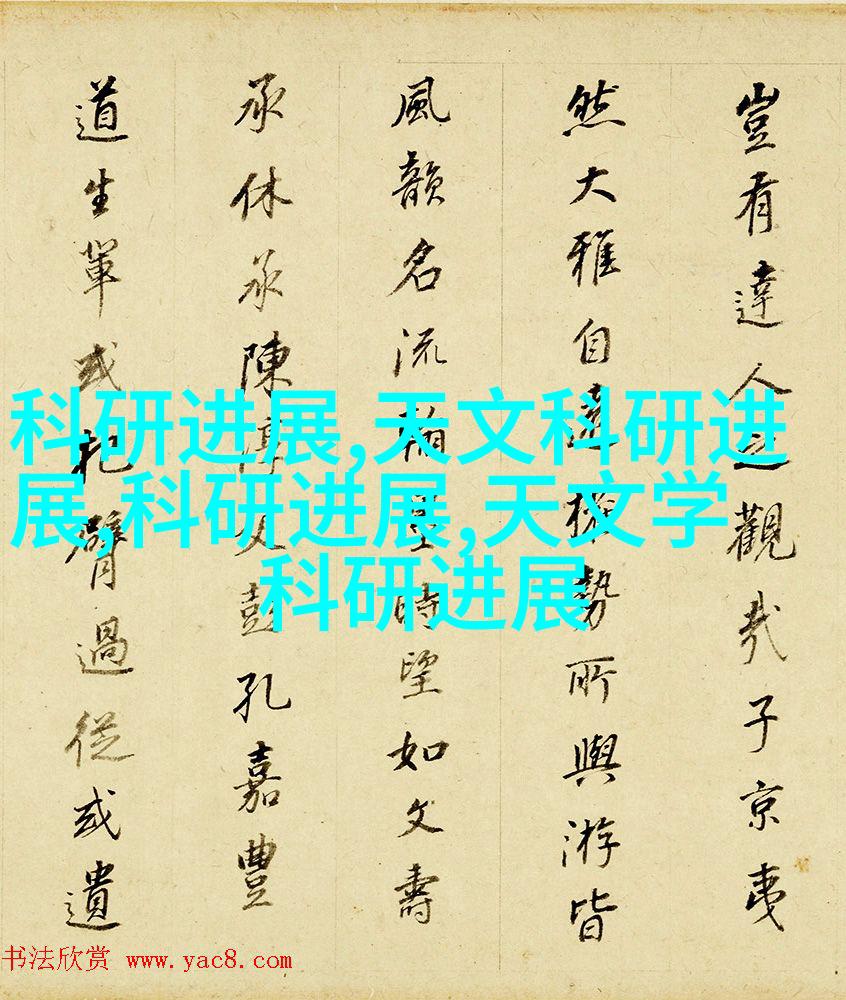 豈有達人之觀哉子京夷
然大雅自遠權勢所與游皆
風韻名流翰墨時望如文壽
承休承陳淳父彭孔嘉豐
道生軰或把臂過從或遺
科研进展,天文科研进
展,科研进展,天文学
科研进展
书法欣赏 www.yac8.com